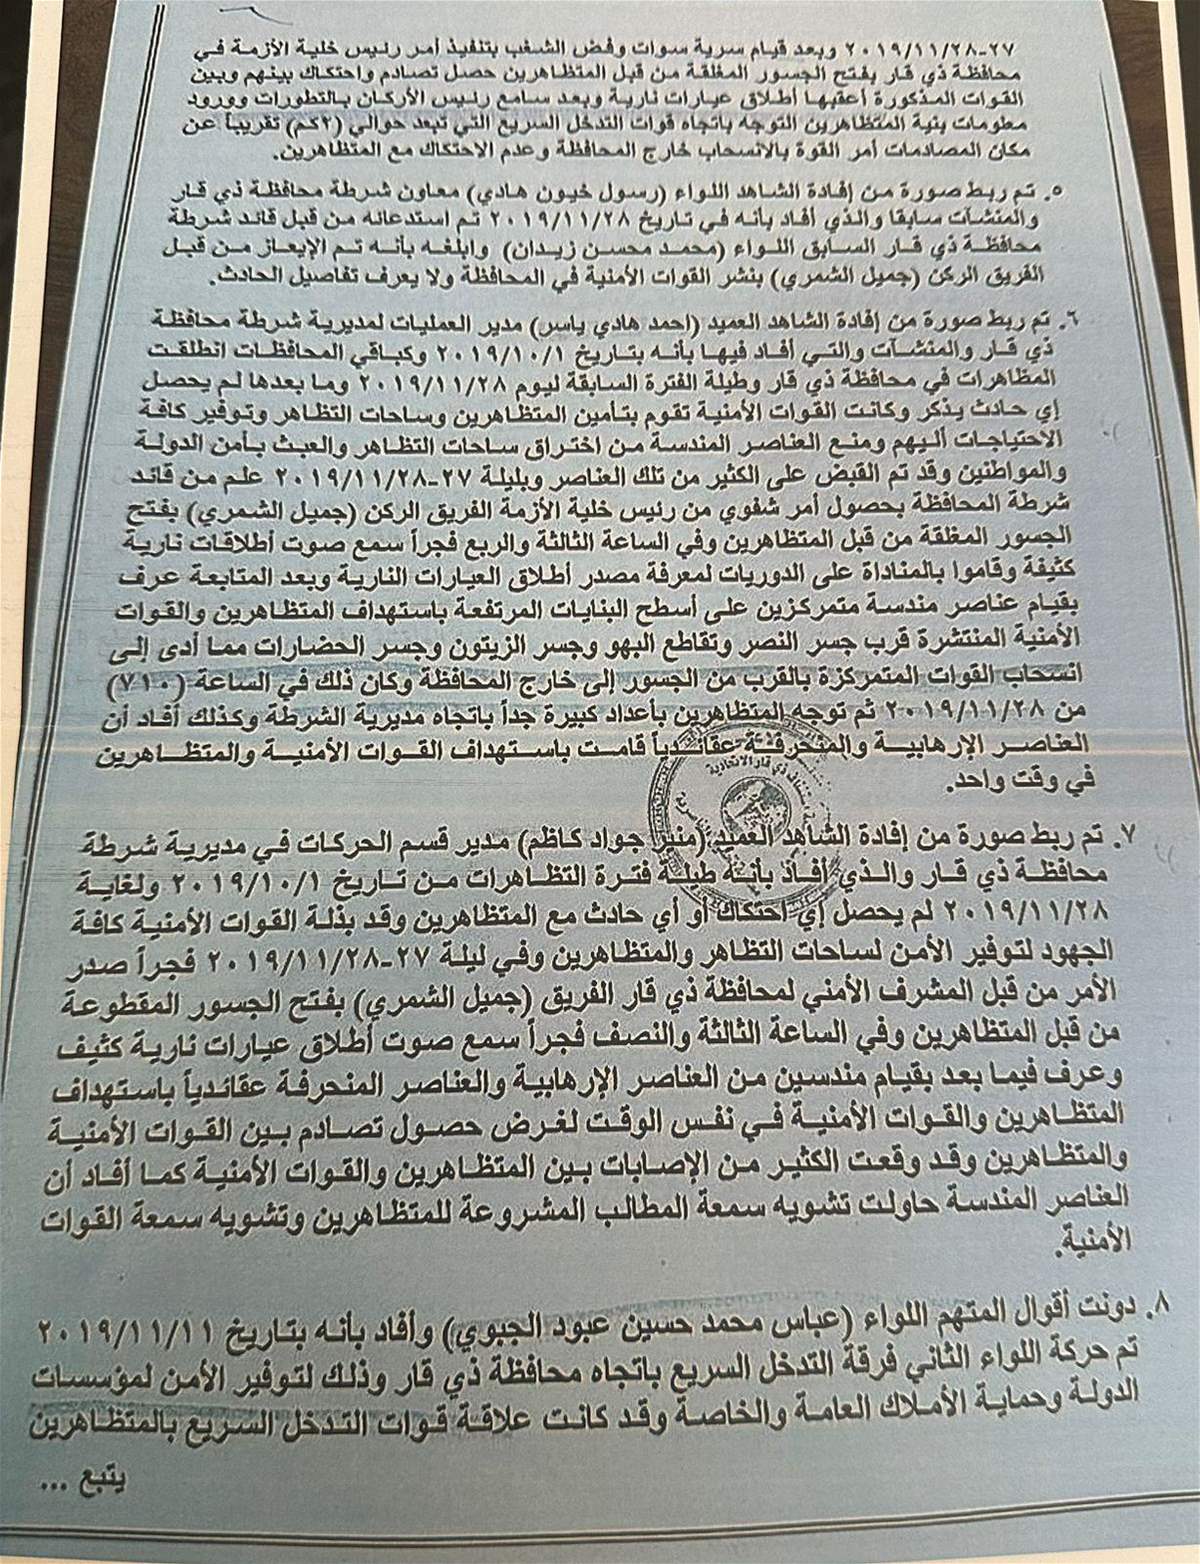 ٢٧-٢٠١٩/١١/٢٨ وبعد قيام سرية سوات وفض الشغب بتنفيذ أمر رئيس خلية الأزمة في
محافظة ذي قار بفتح الجسور المغلقة من قبل المتظاهرين حصل تصادم واحتكاك بينهم وبين
القوات المذكورة أعقبها أطلاق عيارات نارية وبعد سامع رئيس الأركان بالتطورات وورود
معلومات بنية المتظاهرين التوجه باتجاه قوات التدخل السريع التي تبعد حوالي (٢كم) تقريباً عن
مكان المصادمات أمر القوة بالانسحاب خارج المحافظة وعدم الاحتكاك مع المتظاهرين.
٥. تم ربط صورة من إفادة الشاهد اللواء (رسول خيون هادي) معاون شرطة محافظة ذي قار
والمنشآت سابقا والذي أفاد بأنه في تاريخ ٢٠١٩/١١/٢٨ تم استدعائه من قبل قائد شرطة
محافظة ذي قار السابق اللواء (محمد محسن زيدان) وابلغه بأنه تم الإيعاز من قبل
الفريق الركن (جميل الشمري) بنشر القوات الأمنية في المحافظة ولا يعرف تفاصيل الحادث.
٦. تم ربط صورة من إفادة الشاهد العميد (احمد هادي ياسر) مدير العمليات لمديرية شرطة محافظة
ذي قار والمنشآت والتي أفاد فيها بأنه بتاريخ ٢٠١٩/١٠/١ وكباقي المحافظات انطلقت
المظاهرات في محافظة ذي قار وطيلة الفترة السابقة ليوم ٢٠١٩/١١/٢٨ وما بعدها لم يحصل
إي حادث يذكر وكانت القوات الأمنية تقوم بتأمين المتظاهرين وساحات التظاهر وتوفير كافة
الاحتياجات أليهم ومنع العناصر المندسة من اختراق ساحات التظاهر والعبث بأمن الدولة
والمواطنين وقد تم القبض على الكثير من تلك العناصر وبليلة ٢٧-٢٠١٩/١١/٢٨ علم من قائد
شرطة المحافظة بحصول أمر شفوي من رئيس خلية الأزمة الفريق الركن (جميل الشمري) بفتح
الجسور المغلقة من قبل المتظاهرين وفي الساعة الثالثة والربع فجراً سمع صوت أطلاقات نارية
كثيفة وقاموا بالمناداة على الدوريات لمعرفة مصدر أطلاق العيارات النارية وبعد المتابعة عرف
بقيام عناصر مندسة متمركزين على أسطح البنايات المرتفعة باستهداف المتظاهرين والقوات
الأمنية المنتشرة قرب جسر النصر وتقاطع البهو وجسر الزيتون وجسر الحضارات مما أدى إلى
انسحاب القوات المتمركزة بالقرب من الجسور إلى خارج المحافظة وكان ذلك في الساعة (٧١٠)
من ٢٠١٩/١١/٢٨ ثم توجه المتظاهرين بأعداد كبيرة جداً باتجاه مديرية الشرطة وكذلك أفاد أن
العناصر الإرهابية والمنحرفة عقائدياً قامت باستهداف القوات الأمنية والمتظاهرين
في وقت واحد.
ذي قار الاتحادية
٧. تم ربط صورة من إفادة الشاهد العميد (منير جواد كاظم) مدير قسم الحركات في مديرية شرطة
محافظة ذي قار والذي أفاد بأنه طيلة فترة التظاهرات من تاريخ ٢٠١٩/١٠/١ ولغاية
٢٠١٩/١١/٢٨ لم يحصل إي احتكاك أو أي حادث مع المتظاهرين وقد بذلة القوات الأمنية كافة
الجهود لتوفير الأمن لساحات التظاهر والمتظاهرين وفي ليلة ٢٧-٢٠١٩/١١/٢٨ فجراً صدر
الأمر من قبل المشرف الأمني لمحافظة ذي قار الفريق (جميل الشمري) بفتح الجسور المقطوعة
من قبل المتظاهرين وفي الساعة الثالثة والنصف فجراً سمع صوت أطلاق عيارات نارية كثيف
وعرف فيما بعد بقيام مندسين من العناصر الإرهابية والعناصر المنحرفة عقائدياً باستهداف
المتظاهرين والقوات الأمنية في نفس الوقت لغرض حصول تصادم بين القوات الأمنية
والمتظاهرين وقد وقعت الكثير من الإصابات بين المتظاهرين والقوات الأمنية كما أفاد أن
العناصر المندسة حاولت تشويه سمعة المطالب المشروعة للمتظاهرين وتشويه سمعة القوات
الأمنية.
٨. دونت أقوال المتهم اللواء (عباس محمد حسين عبود الجبوي) وأفاد بأنه بتاريخ ٢٠١٩/١١/١١
تم حركة اللواء الثاني فرقة التدخل السريع باتجاه محافظة ذي قار وذلك لتوفير الأمن لمؤسسات
الدولة وحماية الأملاك العامة والخاصة وقد كانت علاقة قوات التدخل السريع بالمتظاهرين
يتبع ...